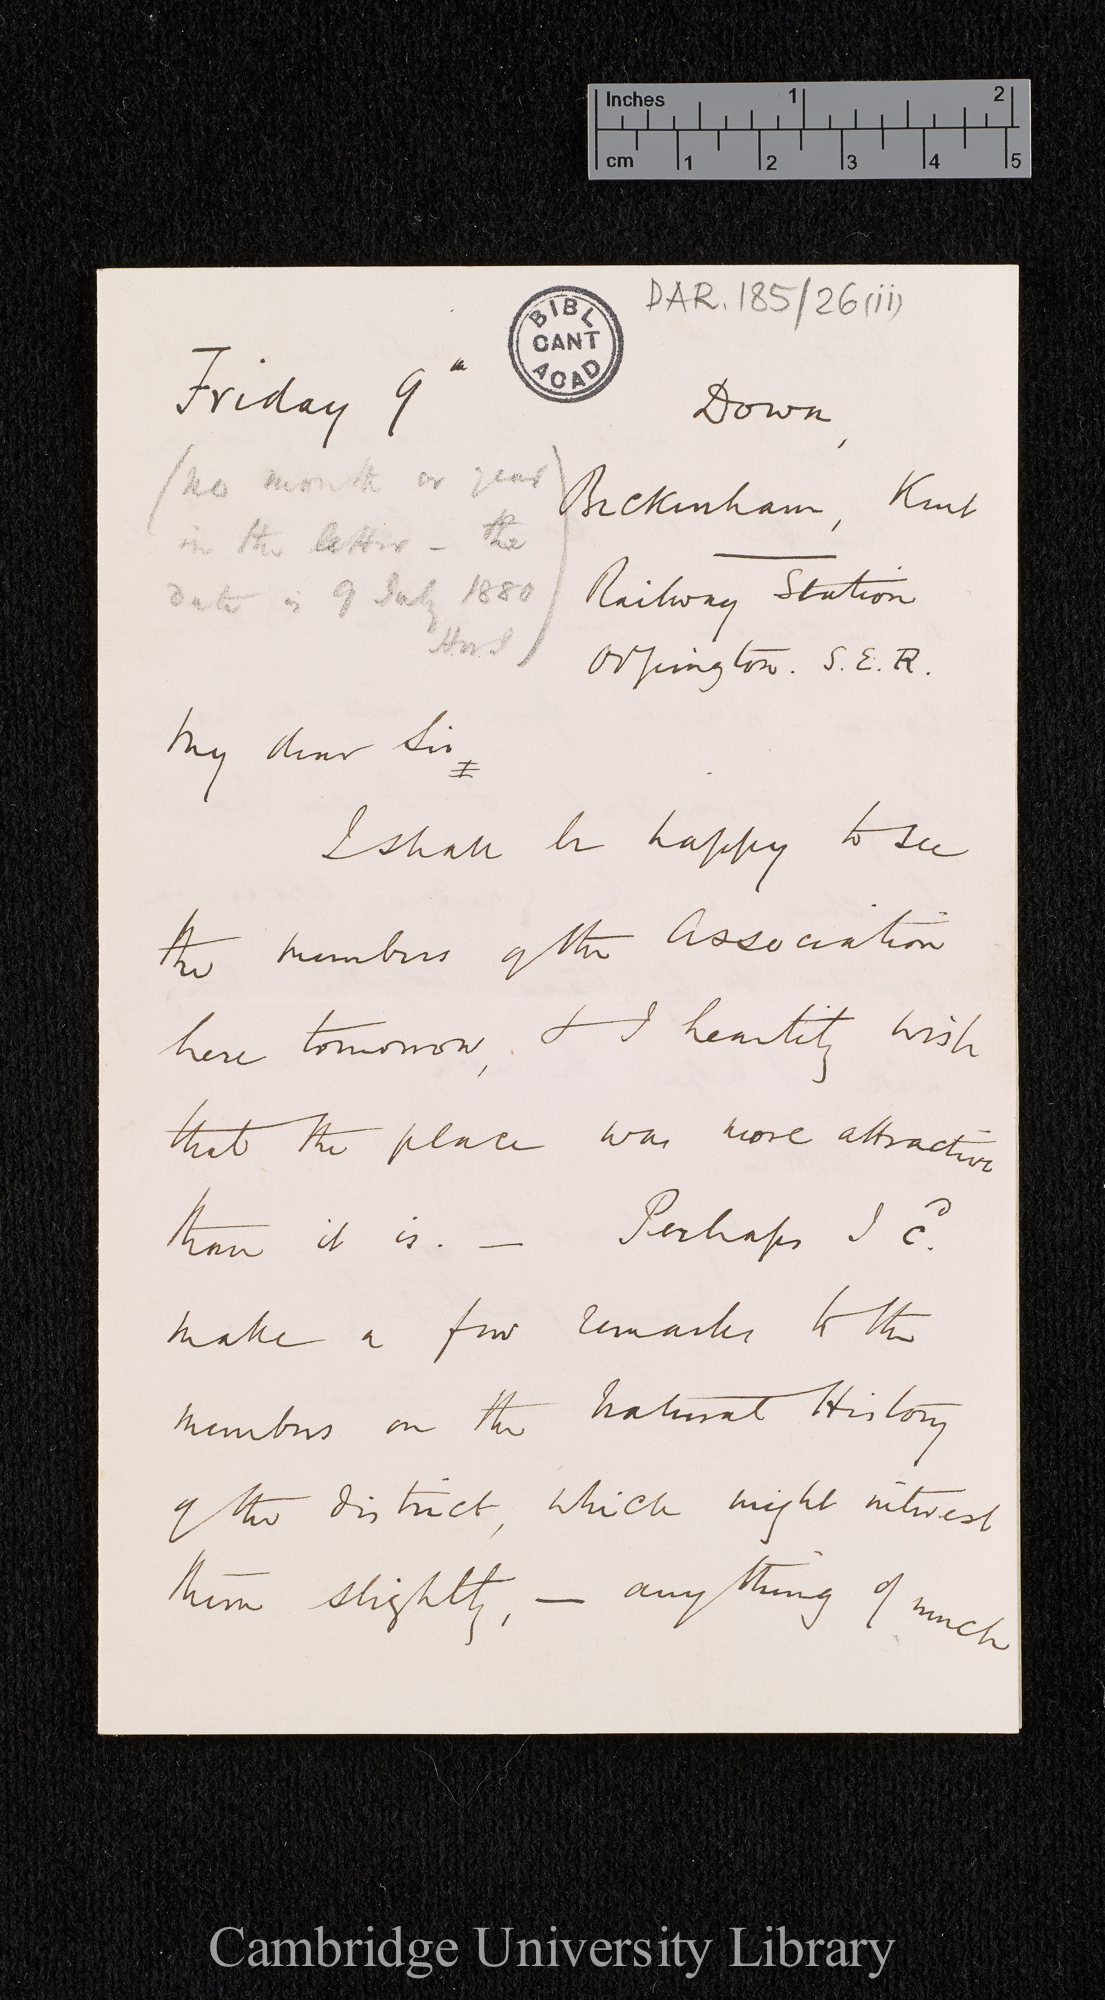 Inches 1 2
cm 1 2 3 4 5
DAR. 185/26 (ii)
BIBL
CANT
ACAD
Friday 9th
Down,
Beckenham, Kent
Railway Station
Orpington. S.E.R.
(No month or year
in the letter – the
date is 9 July 1880
)
My dear Sir
I shall be happy to see
the members of the Association
here tomorrow, & I heartily wish
that the place was more attractive
than it is. — Perhaps I cd.
make a few remarks to the
members on the Natural History
of the district, which might interest
them slightly, — anything of much
Cambridge University Library